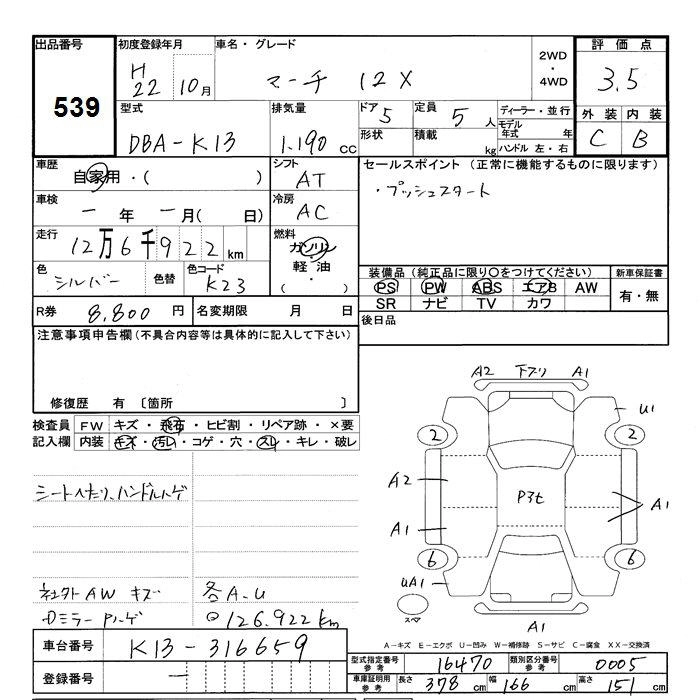 出品番号
539
初度登録年月
H
22 10月
車名・グレード
マーチ 12X
2WD
・
4WD
評価点
3.5
外装 内装
C B
型式
DBA-K13
排気量
1.190 cc
ドア 5
定員 5 人
形状
積載 kg
ディーラー・並行
モデル
年式 年
ハンドル 左・右
車歴
自家用・( )
シフト
AT
車検
ー 年 ー 月( 日)
冷房
AC
走行
12万6千922km
燃料
ガソリン
・
軽油
・
( )
色
シルバー
色替
色コード
K23
R券 8.800 円
名変期限 月 日
セールスポイント (正常に機能するものに限ります)
・プッシュスタート
装備品(純正品に限り〇をつけてください)
PS PW ABS エアB AW
SR ナビ TV カワ
新車保証書
有・無
後日品
注意事項申告欄(不具合内容等は具体的に記入して下さい)
修復歴 有 〔箇所 〕
検査員
記入欄
FW キズ・飛石・ヒビ割・リペア跡・×要
内装 キズ・汚レ・コゲ・穴・スレ・キレ・破レ
シートヘたり、ハンドルハゲ
AW キズ
各A.U
Dミラー
126.922km
A2 下ブリ A1
U1
2 2
A2
P3t
A1
A1
6 6
UA1
スペア
A1
A-キズ E-エクボ U-凹み W-補修跡 S-サビ C-腐食 XX-交換済
車台番号 K13-316659
登録番号 ー
型式指定番号
参考
16470
類別区分番号
参考
0005
車庫証明用
参考
長さ 378 cm 幅 166 cm 高さ 151 cm